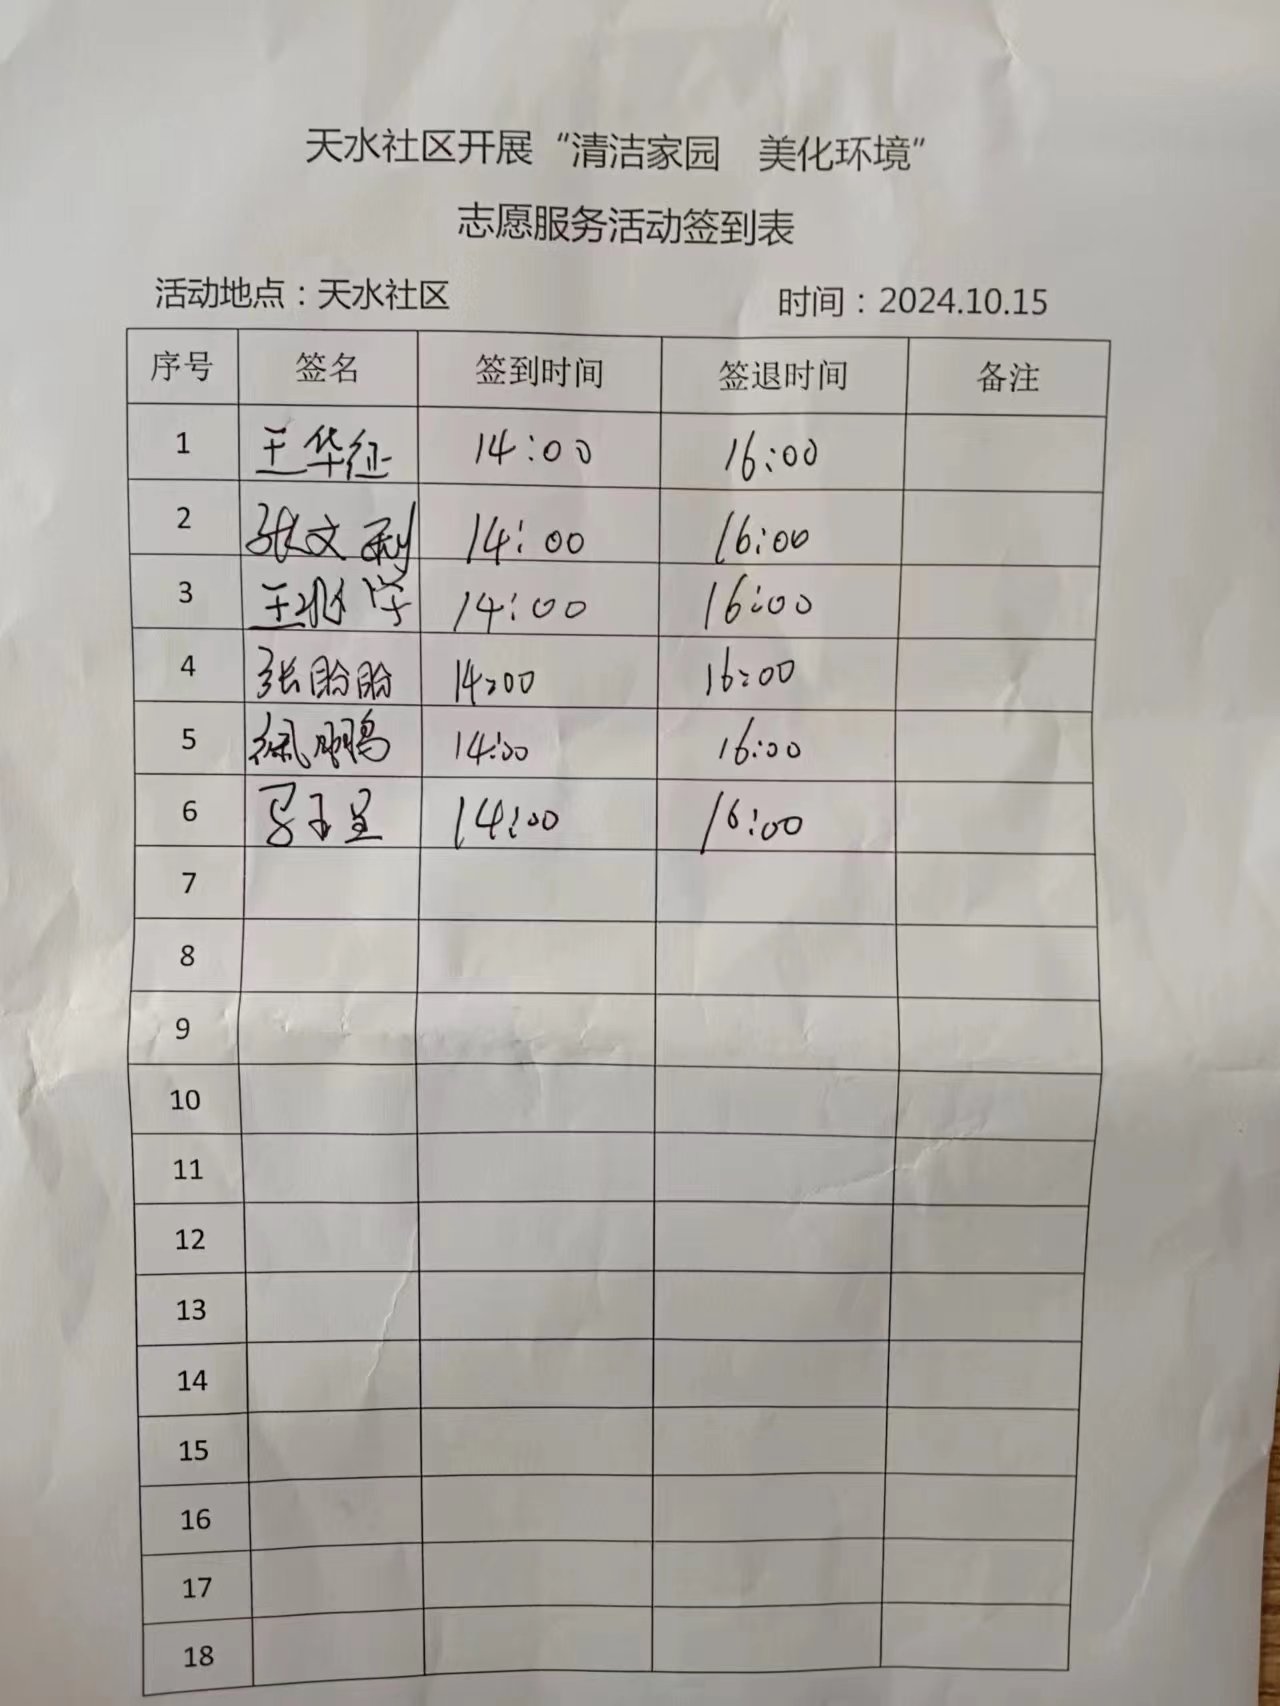 天水社区开展“清洁家园 美化环境”
志愿服务活动签到表
活动地点：天水社区 时间：2024.10.15
序号 签名 签到时间 签退时间 备注
1 王华征 14:00 16:00
2 张文利 14:00 16:00
3 王兆学 14:00 16:00
4 张盼盼 14:00 16:00
5 鹏 14:00 16:00
6 14:00 16:00
7
8
9
10
11
12
13
14
15
16
17
18